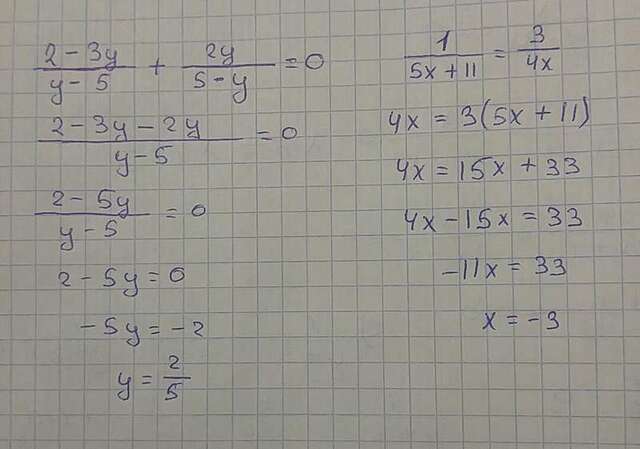 (2 - 3y)/(y - 5) + 2y/(5 - y) = 0
(2 - 3y - 2y)/(y - 5) = 0
(2 - 5y)/(y - 5) = 0
2 - 5y = 0
-5y = -2
y = 2/5
1/(5x + 11) = 3/(4x)
4x = 3(5x + 11)
4x = 15x + 33
4x - 15x = 33
-11x = 33
x = -3